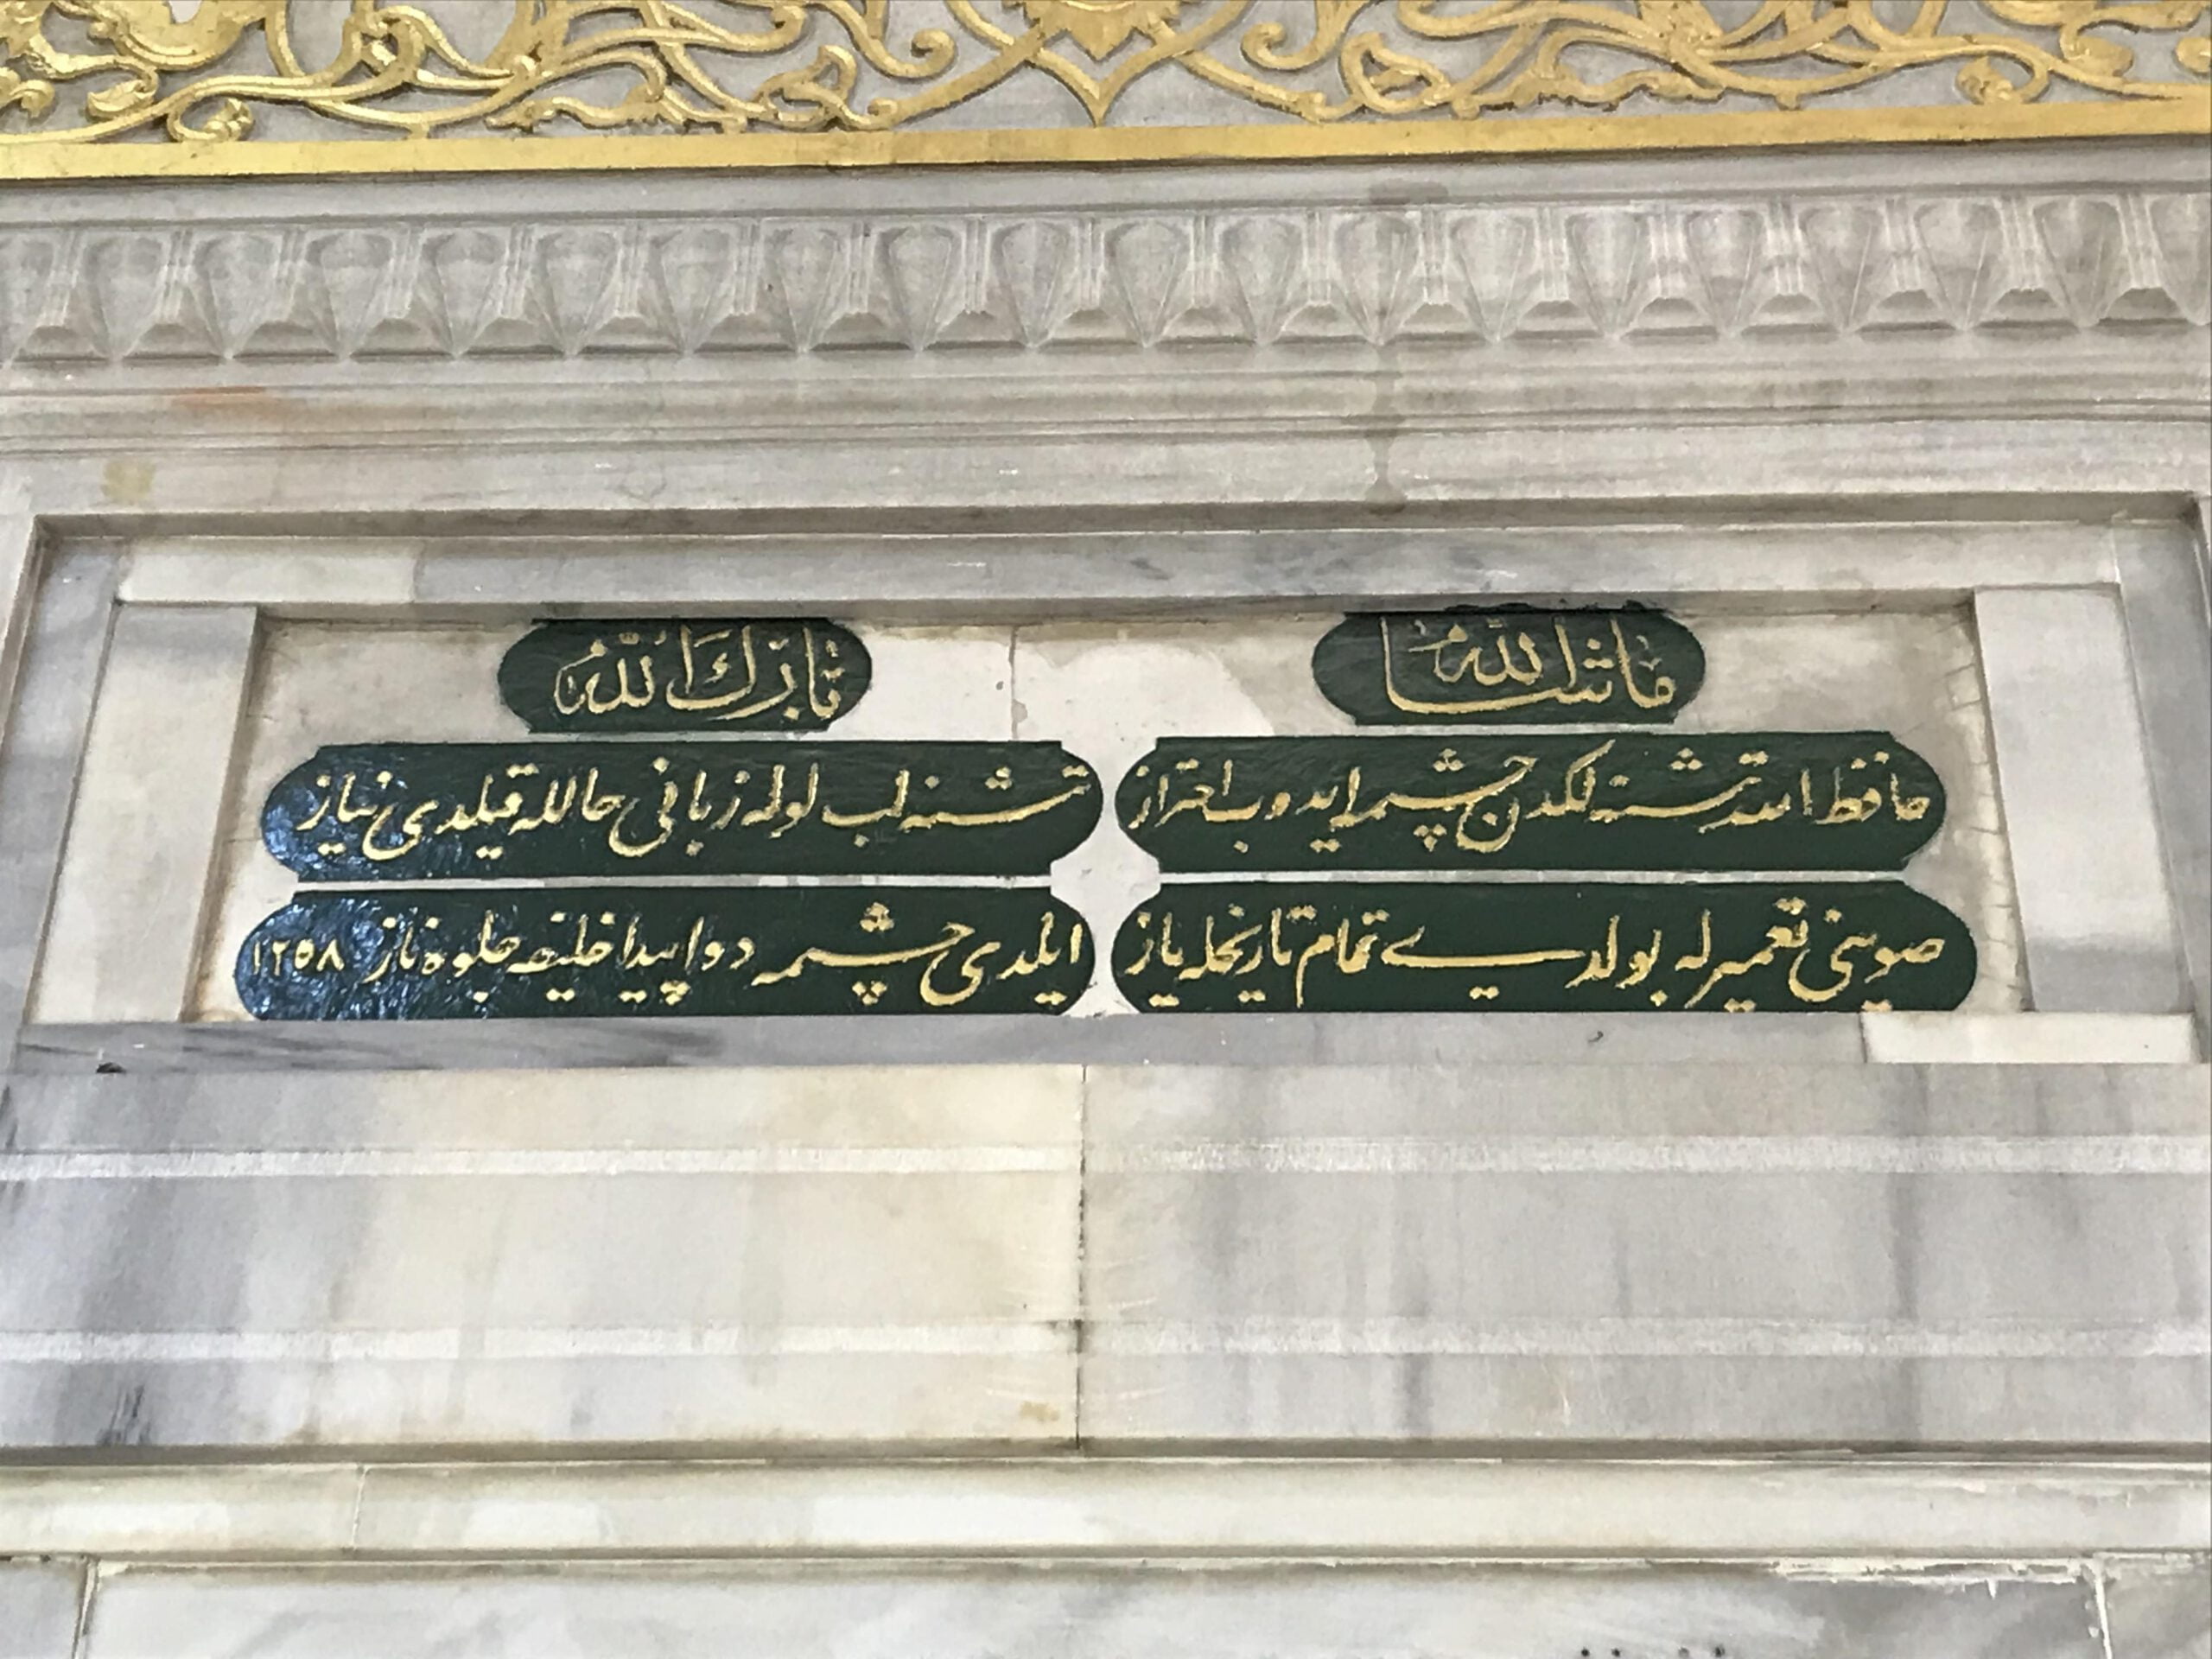 ماشاالله
تبارك الله
حافظ الله تشنه لكدن چشمه ايدوب احتراز
تشنه لب لوله زبانی حالله قیلدی نیاز
صوینی تعمیرله بولدی تمام تاریخله یاز
ایلدی چشمه دو اپیدا خلیفه جلوه ناز ١٢٥٨